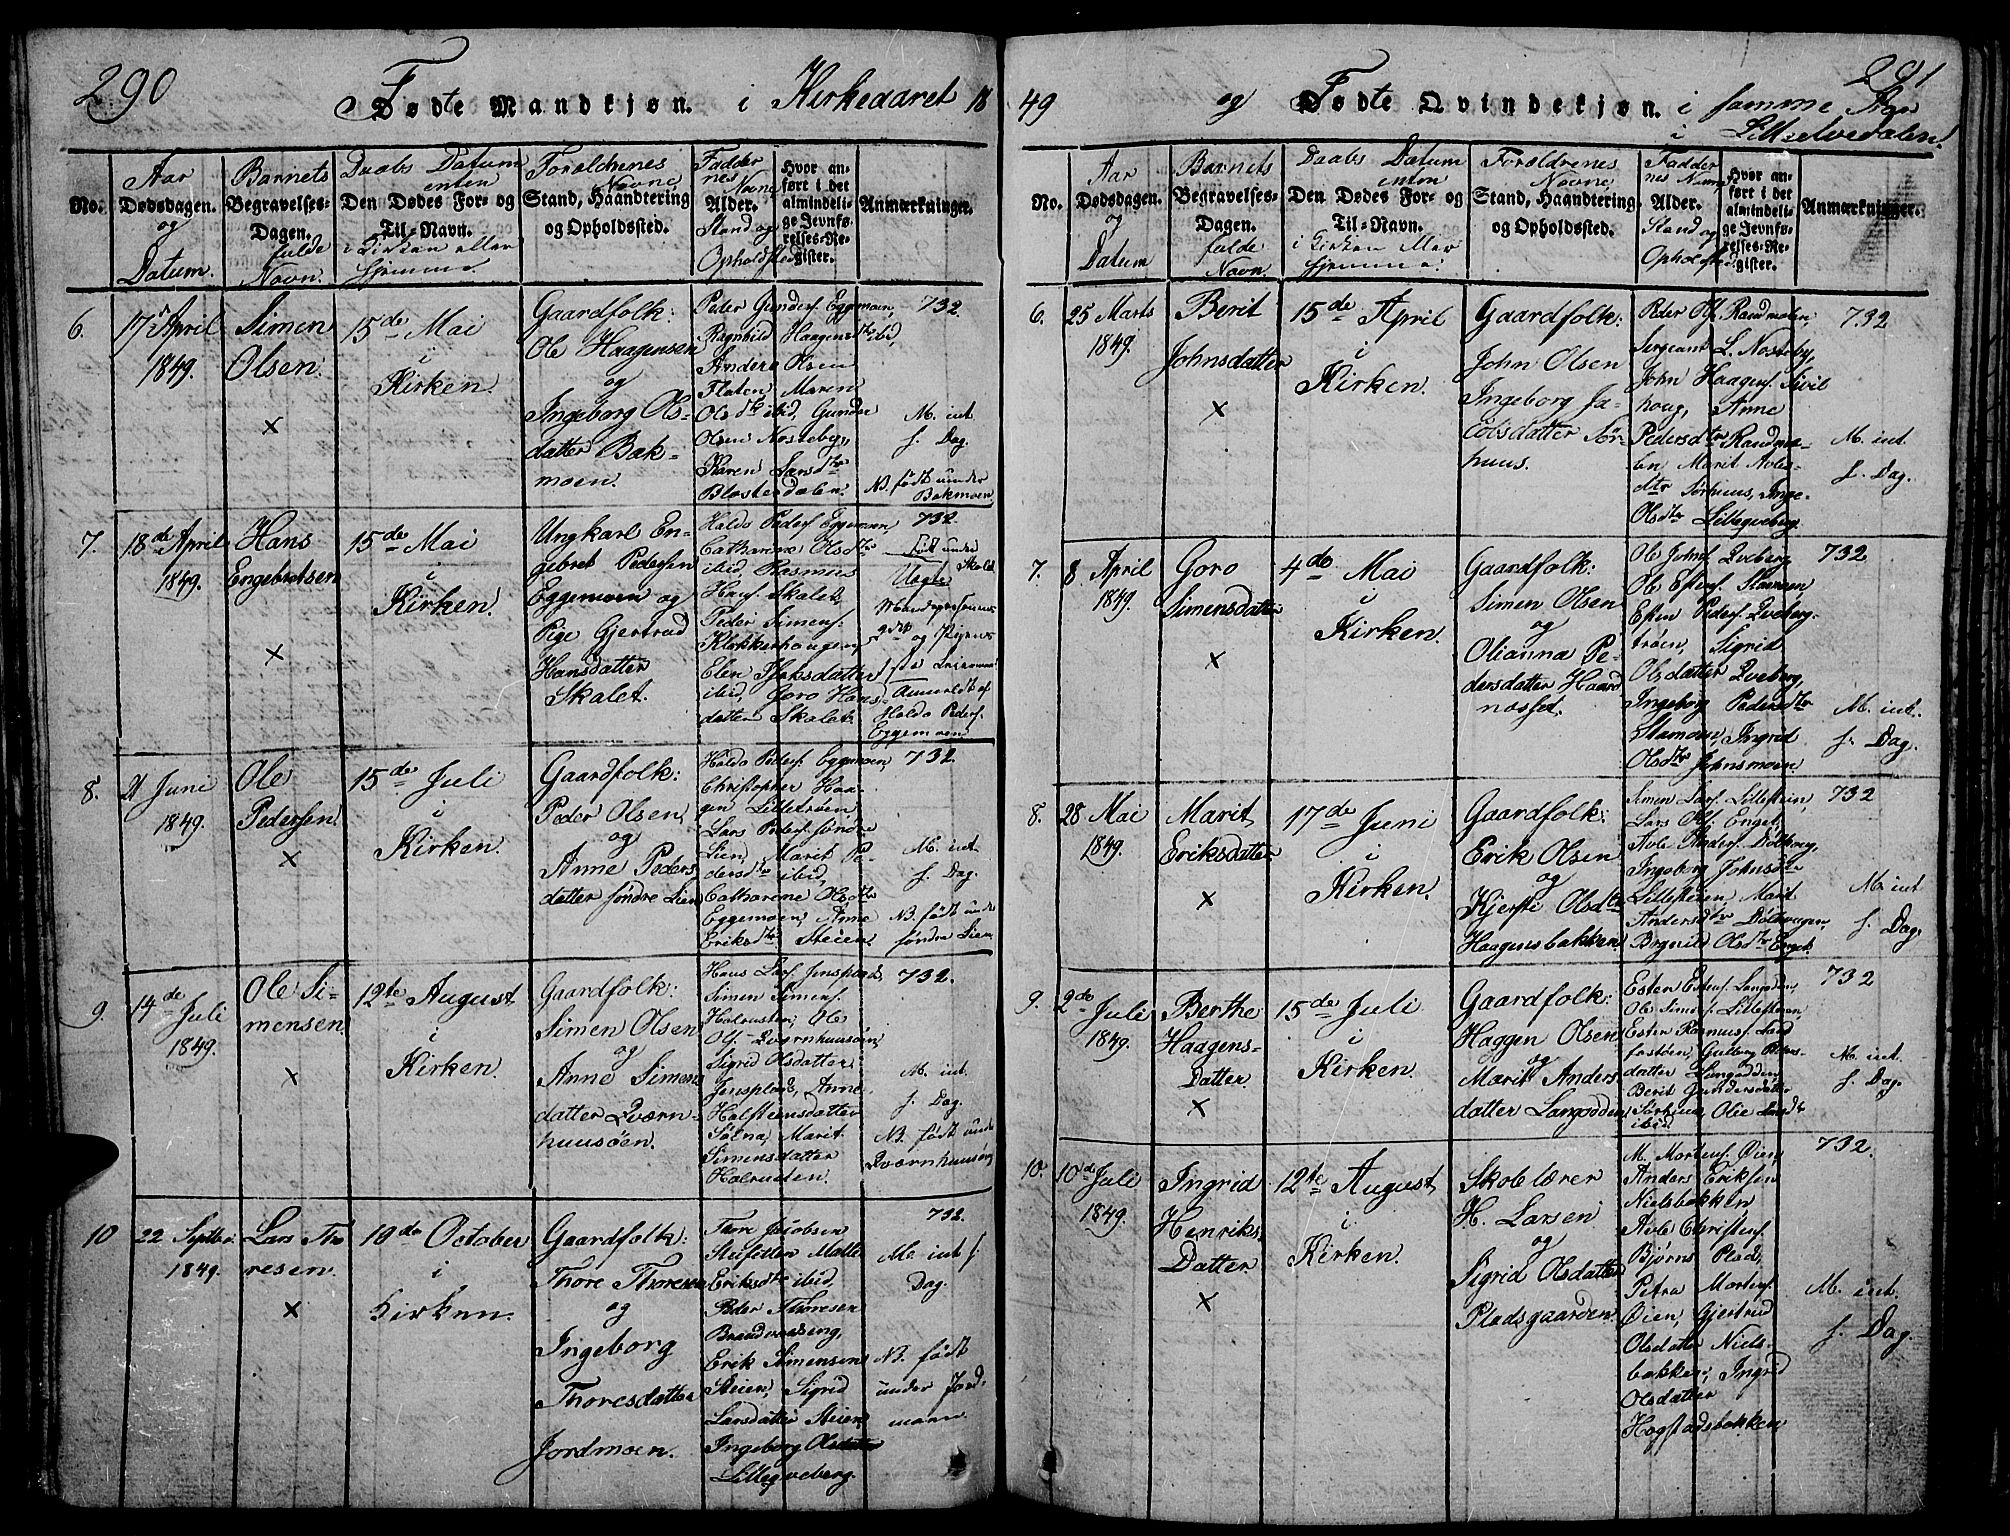 290
Fødte Mandkjøn. i Kirkeaaret 18
No.
Aar
Dødsdagen.
og
Datum.
Barnets
Begravelses-
Dagen.
fulde
Navn.
Daabs Datum
enten
Den Dødes For- og
Til-Navn.
i Kirken eller
hjemme.
Forældrenes
Navne,
Stand, Haandtering
og Opholdssted.
Fadder
nes
Navne
Alder.
Stand og
Opholdsted
Hvor an-
ført i det
almindeli-
ge Jevnfø-
relses-Re-
gister.
Anmærkninger.
6.
17 April
1849.
Simen
Olsen.
×
15de Mai
i
Kirken.
Gaardfolk:
Ole Haagensen
og
Ingeborg Ols-
datter Bak-
moen.
Peder Gunders. Eggmoen,
Ragnhild Haagensdtr ibid,
Anders Olsen
Floten, Maren
Olsdtr ibid, Gunder
Olsen Nosteby,
Karen Larsdtr
Blosterdalen.
732
M. int.
f. Dag.
NB. født under
Bakmoen
7.
18de April
1849.
Hans
Engebretsen
×
15de Mai
i
Kirken.
Ungkarl En-
gebret Pedersen
Eggemoen og
Pige Gjertrud
Hansdatter
Skalet.
Haldo Peders. Eggemoen,
Catharine Olsdtr
ibid, Rasmus
Hans. Skalet,
Peder Simens.
Klokkerhaugen,
Elen
ibid, Goro Hans-
datter Skalet.
732.
Født under
Skalet
Uægte
og Pigens
Anmeldt af
Haldo Peders.
Eggemoen
8.
21 Juni
1849.
Ole
Pedersen.
×
15de Juli
i
Kirken.
Gaardfolk:
Peder Olsen,
og
Anne Peders
datter søndre Lien
Haldo Peders. Eggemoen,
Christopher Haa-
gen Lilletroen,
Lars Peders. søndre
Lien, Marit Pe-
dersdtr ibid,
Catharine Olsdtr
Eggemoen, Anne
Eriksdtr Steien.
732.
M. int.
f. Dag.
NB. født unde
søndre Lien.
9.
14de Juli
1849.
Ole Si-
mensen
×
12te August
i
Kirken.
Gaardfolk:
Simen Olsen
og
Anne Simens
datter Qværn-
huusøen.
Hans Lars. Jensplads,
Simen Simens.
Ole
Ols. Qværnhuusøen,
Sigrid Olsdatter
Jensplads, Anne
Halsteinsdatter
Marit
Simensdatter
732.
M. int.
f. Dag.
NB. født unde
Qværnhuusøen
10
22 Septbr.
1849.
Lars Tho
resen.
×
10de October
i
Kirken.
Gaardfolk:
Thore Thoresen
og
Ingeborg
Thoresdatter
Jordmoen.
Thore Jacobsen
Malle
Eriksdtr ibid,
Peder Thoresen
Brandvoldeng,
Erik Simensen
Steien, Sigrid
Larsdatter Steien,
Ingeborg Olsdatter
Lillegveberg.
732.
M. int f.
Dag.
NB. født
under Jord-
moen
49
og Fødte Qvindekjøn. i samme Aar
i Lilleelvedalen.
291
No.
Aar
Dødsdagen.
og
Datum
Barnets
Begravelses-
Dagen.
fulde
Navn.
Daabs Datum
enten
Den Dødes For- og
Til-Navn.
i Kirken eller
hjemme.
Forældrenes
Navne,
Stand, Haandtering
og Opholdssted.
Fadder
nes Navne
Alder.
Stand og
Opholdsted
Hvor an-
ført i det
almindeli-
ge Jevnfø-
relses-Re-
gister.
Anmærkninger.
6.
25 Marts
1849.
Berit
Johnsdatter
×
15de April
i
Kirken.
Gaardfolk:
John Olsen
Ingeborg Ja-
cobsdatter Sør-
huus.
Peder Ols. Randmælen,
Sergeant L. Nosteby,
John Haagens. Sivil
houg, Anne
Pedersdtr Randmæ-
len, Marit
dtr Sørhuus, Inge-
Olsdtr Lillegveberg.
732
M. int
f. Dag.
7.
8 April
1849.
Goro
Simensdatter
×
4de Mai
i
Kirken.
Gaardfolk:
Simen Olsen
og
Olianna Pe-
dersdatter Haard
nosset.
Ole Johns. Qveberg,
Ole Estens. Stamoen
Esten Peders. Qveberg-
trøen, Sigrid
Olsdatter Qveberg,
Ingeborg Pedersdtr
Stamoen, Ingrid
Olsdtr Johnsmoen.
732
M. int.
f. Dag.
8.
28 Mai
1849.
Marit
Eriksdatter
×
17de Juni
i
Kirken.
Gaardfolk:
Erik Olsen
og
Kjersti Olsdtr
Haagensbakken.
Simen Lars. Lillesteien,
Lars Ols. Enget,
Anders.
Ingeborg Johnsdtr
Lillesteien, Marit
Andersdtr
Olsdtr Enget.
732
M. int
f. Dag.
9.
2de Juli
1849.
Berthe
Haagens-
Datter.
×
15de Juli
i
Kirken.
Gaardfolk:
Haggen Olsen
og
Marit Anders
datter Langodden,
Esten Estens. Langodden,
Ole Simens. Lillesteien,
Esten Rasmus.
Gulborg Peders-
datter Langodden,
Berit Gundersdatter
Sørhuus, Olie
ibid.
732
M. int
f. Dag.
10.
10de Juli
1849.
Ingrid
Henriks
Datter.
×
12te August
i
Kirken.
Skolelærer
H. Larsen
og
Sigrid Olsdatter
Pladsgaarden.
M. Mortens. Øien,
Anders Eriksen
Nielsbakken
Christens.
Bjørns Plads,
Petra Mortens.
Øien, Gjertrud
Olsdatter Niels-
bakken, Ingrid
Olsdatter
Hogstadsbakken
732.
M. int.
f. Dag.